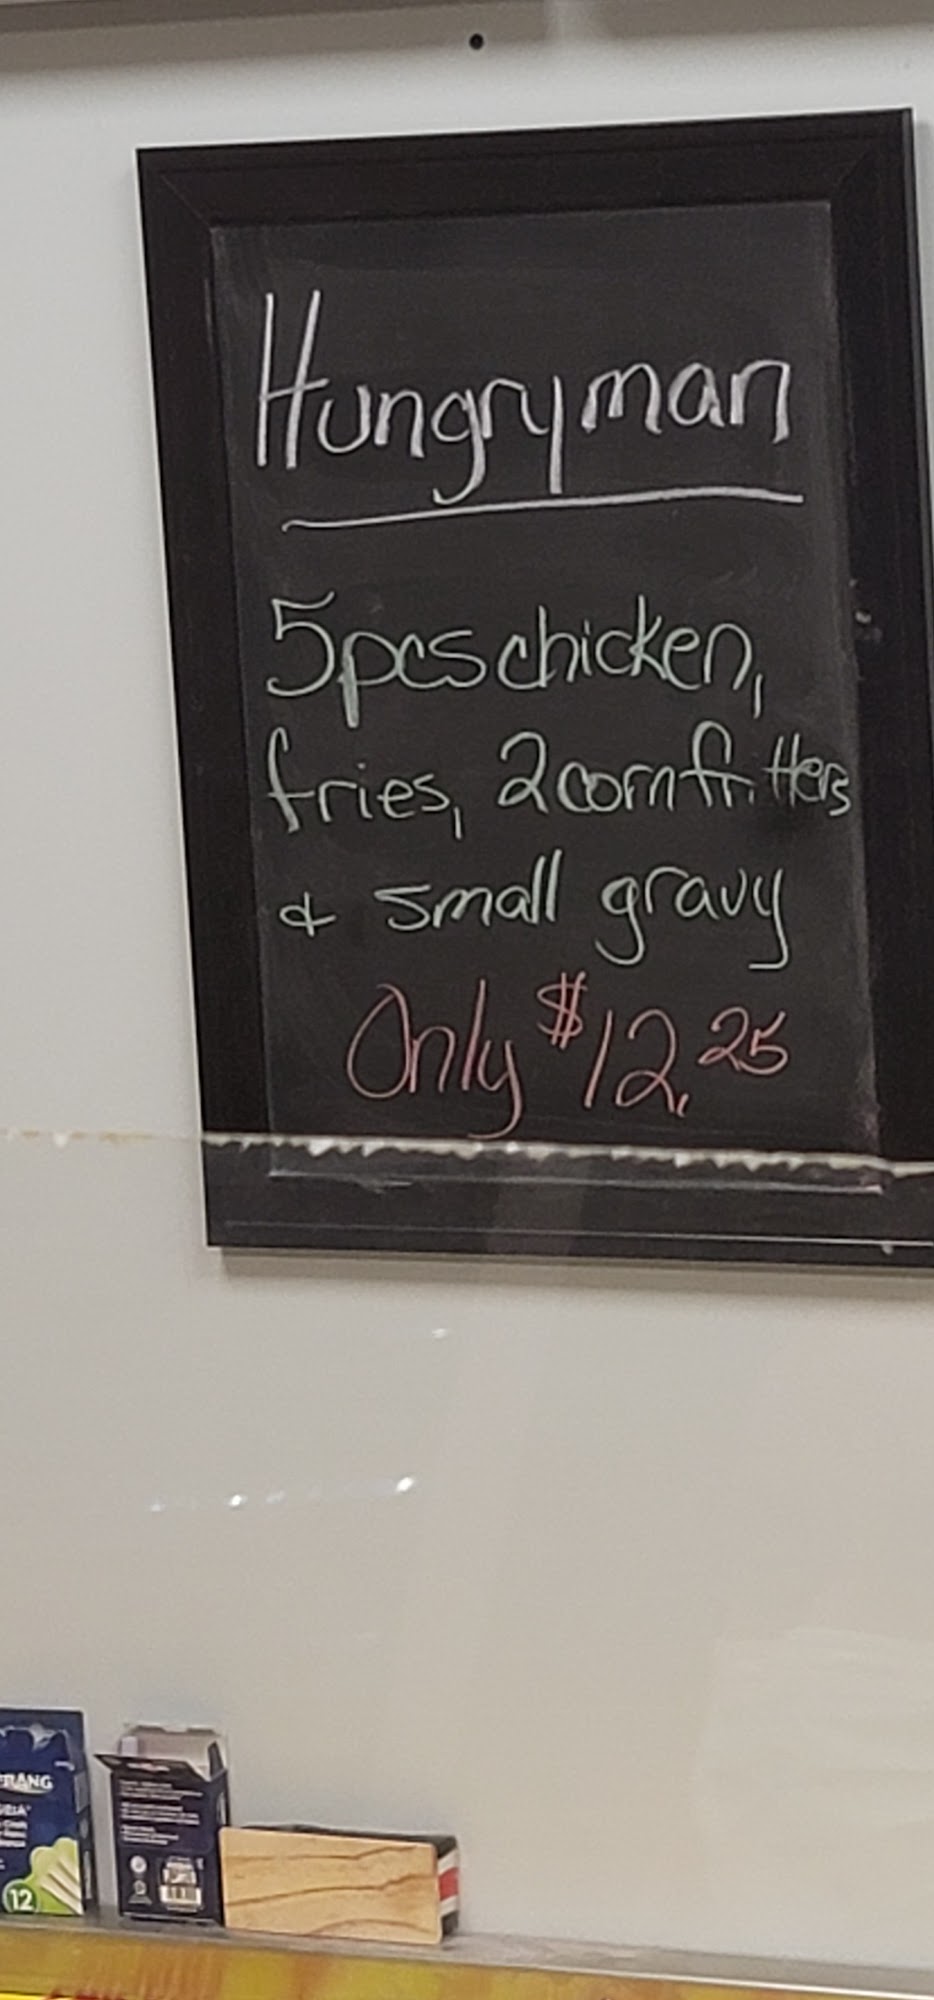 Hungryman
5pcs chicken,
fries, 2 corn fritters
& small gravy
Only $12.25
PRANG
12